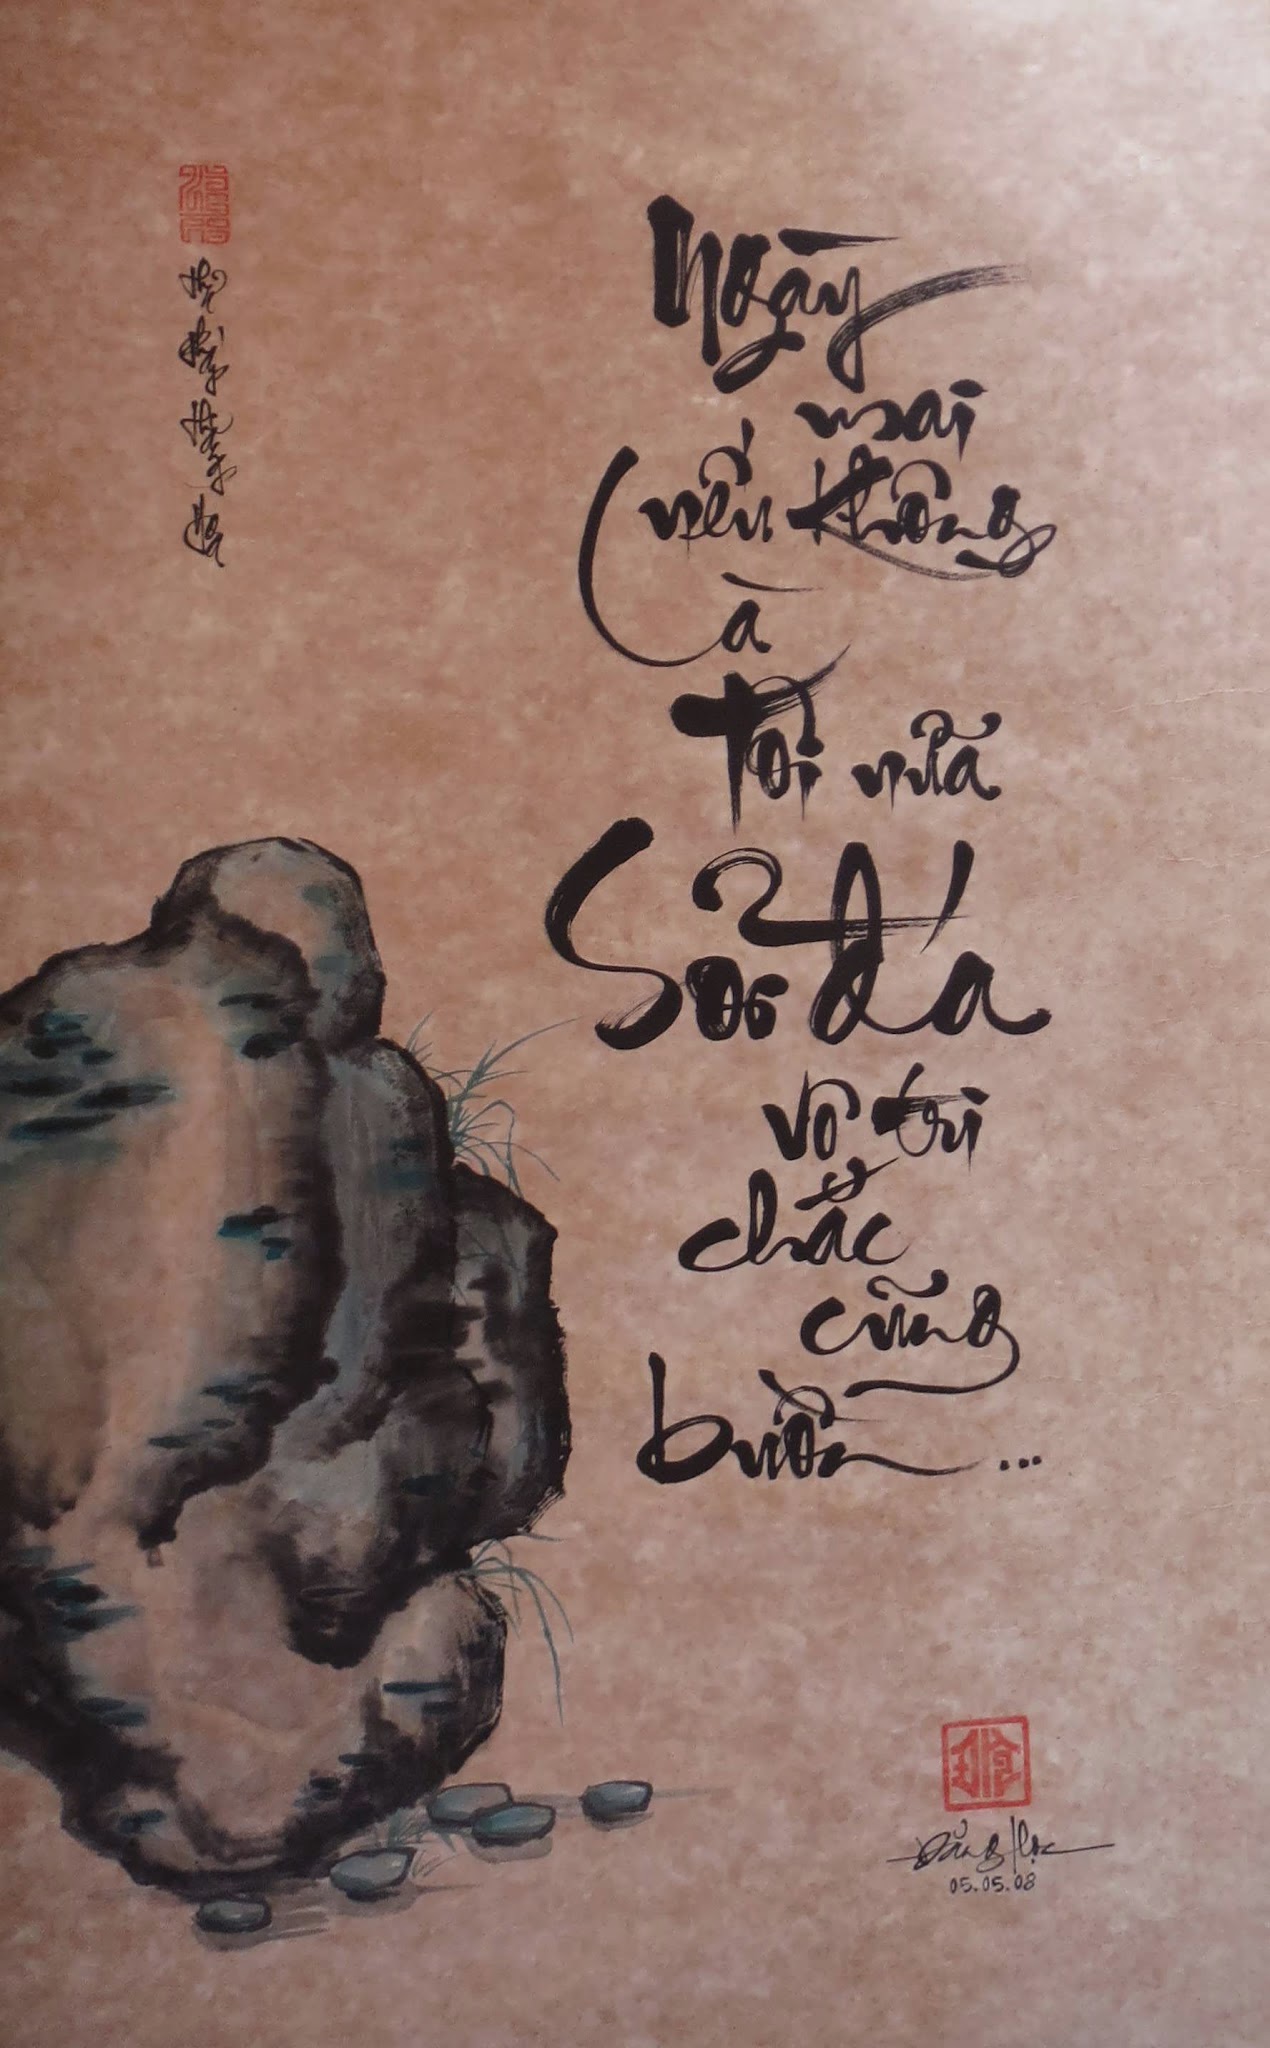 Ngày
mai
nếu không
Là
tôi nữa
Sỏi Đá
vô tri
chắc
cũng
buồn...
Đăng Học
05.05.08